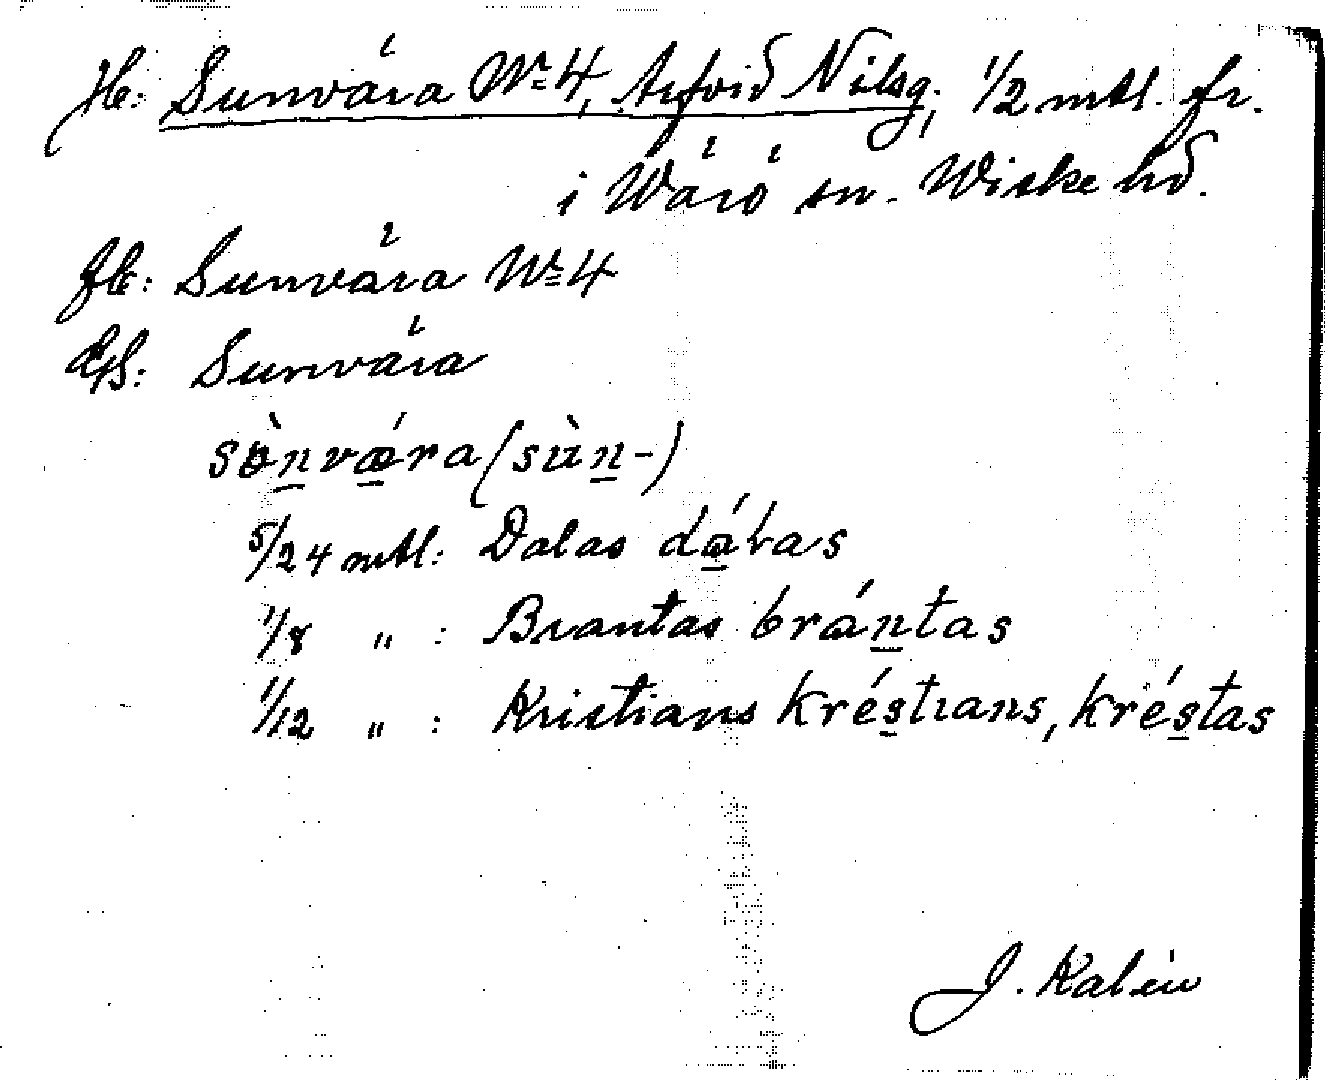 Hb: Sunvära Nº 4, Arfvid Nilsg., 1/2 mtl. fr.
i Wärö sn. Wiske hd.
Jb: Sunvära Nº 4
Sunvära
sònvǽra (sùn-)
5/24 mtl: Dalas dálas
1/8 " : Brantas brántas
1/12 " : Kristians kréstians, kréstas
J. Kalén